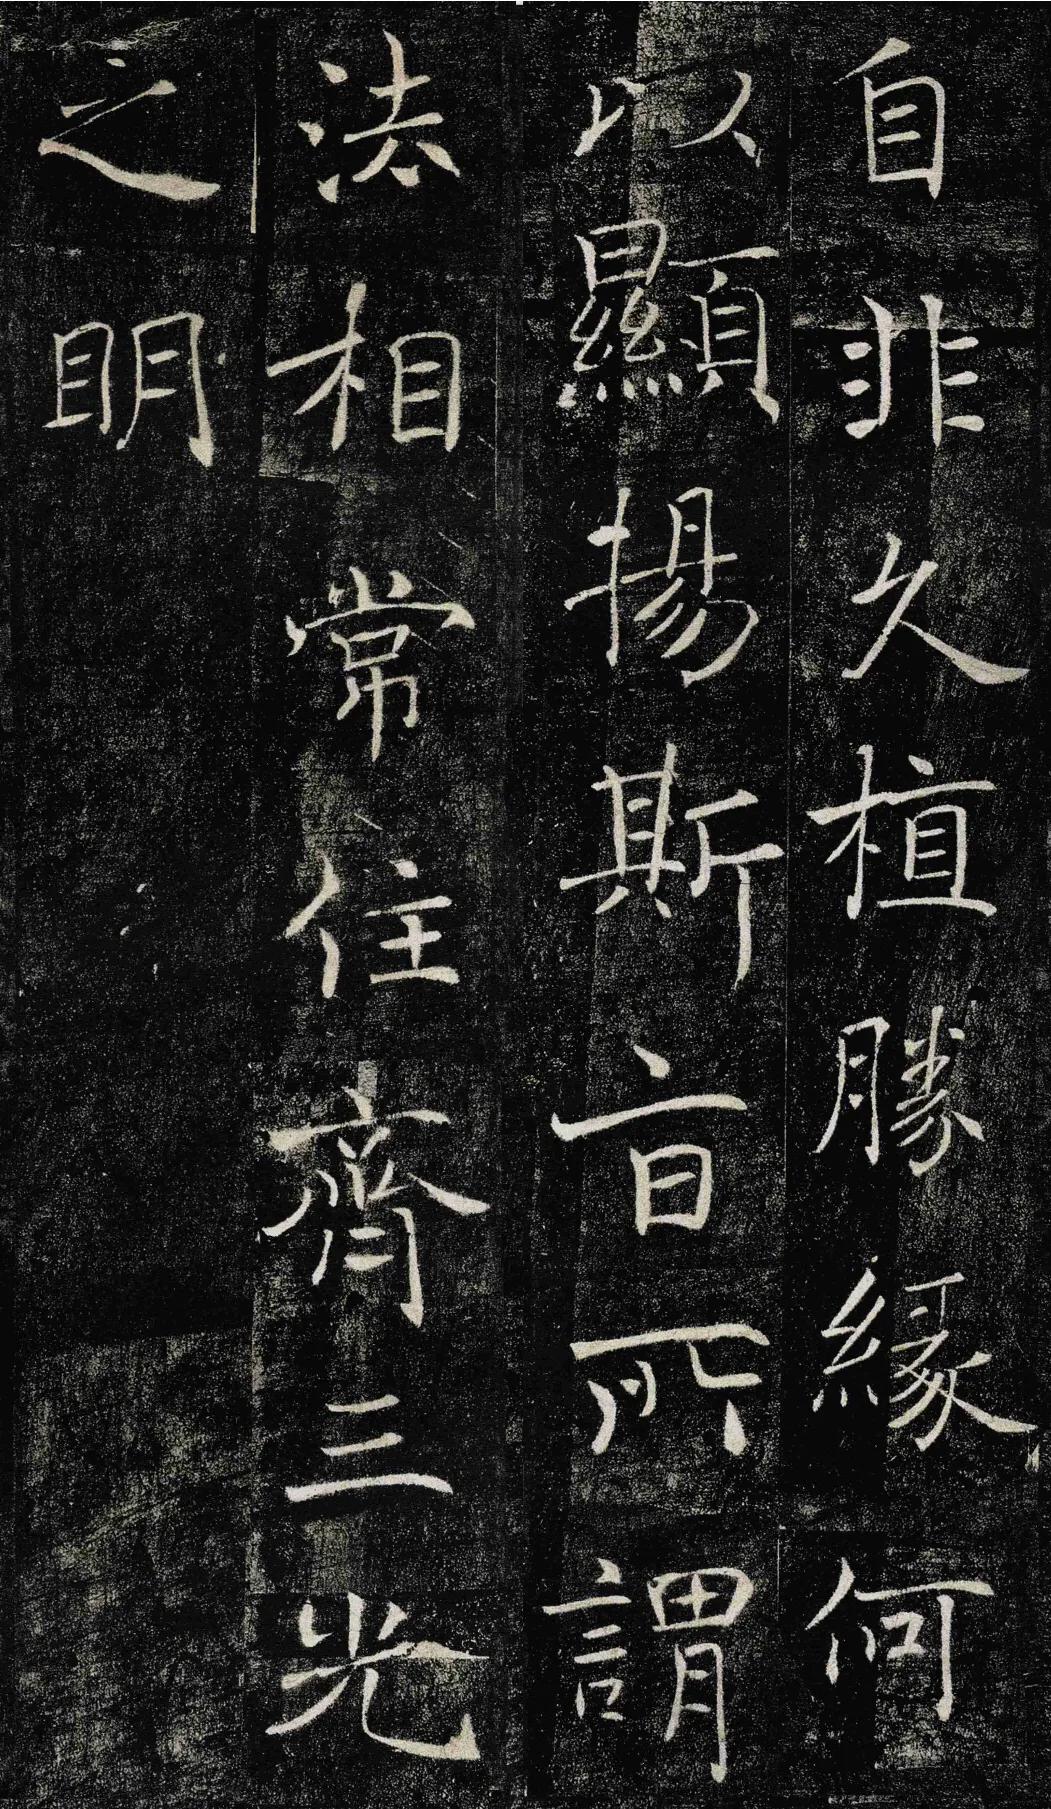 自非久植勝緣何
以顯揚斯旨所謂
法相常住齊三光
之明